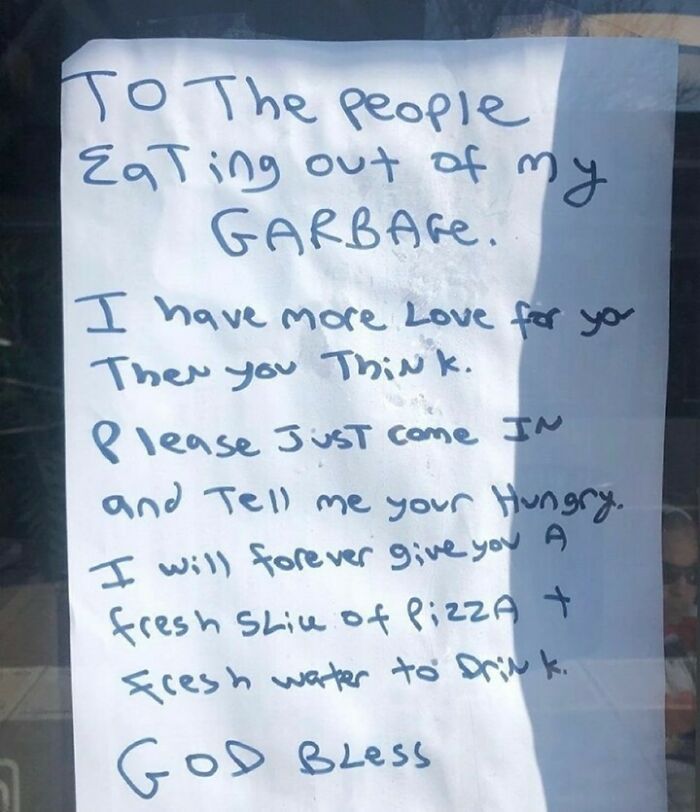 TO The people
EaTing out of my
GARBAGe.
I have more Love for you
Then you Think.
Please JusT come IN
and Tell me your Hungry.
I will forever give you A
fresh SLice of PizzA +
fresh water to DriNk.
GOD BLess